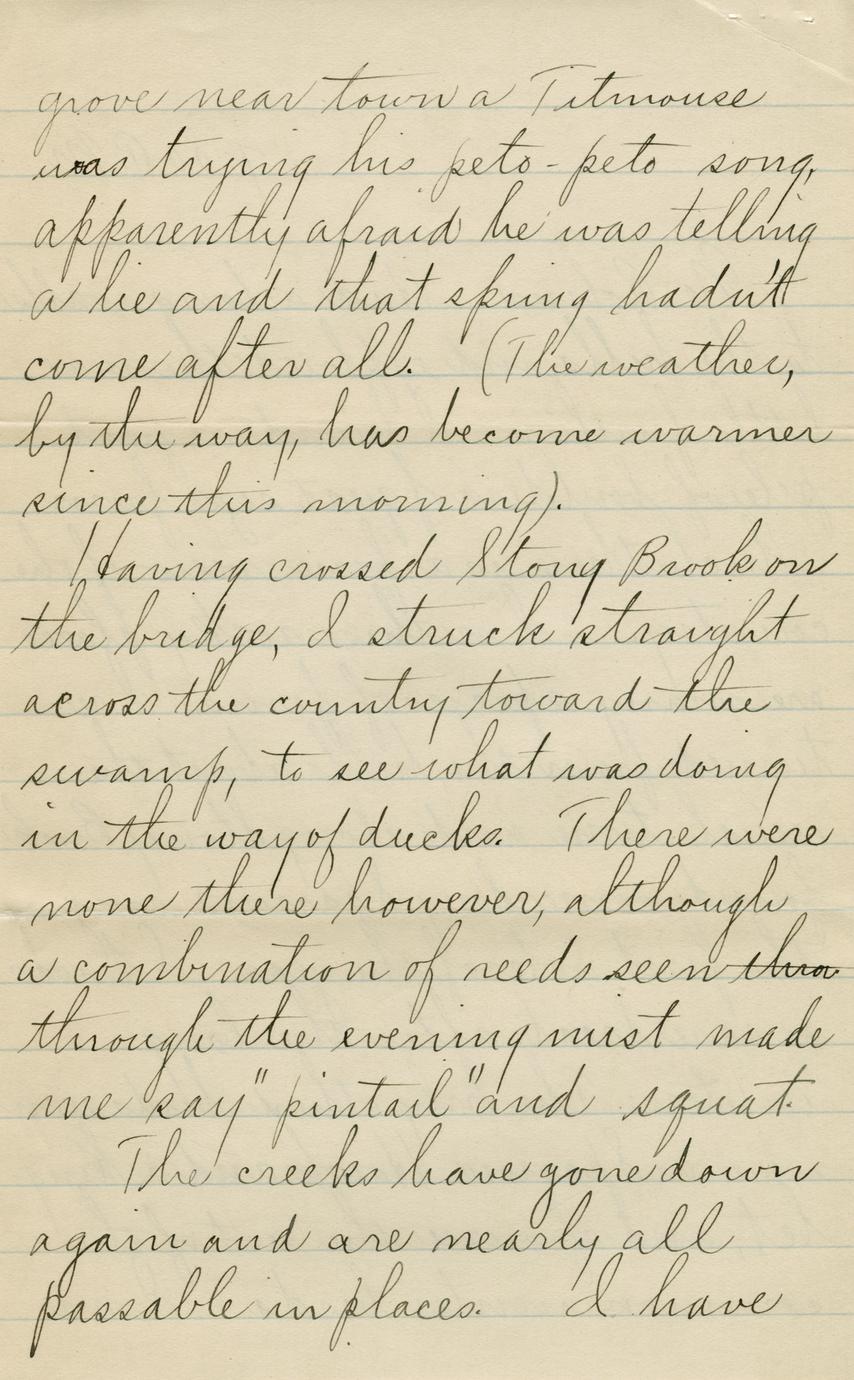 grove near town a Titmouse
was trying his peto-peto song,
apparently afraid he was telling
a lie and that spring hadn't
come after all. (The weather,
by the way, has become warmer
since this morning).
Having crossed Stony Brook on
the bridge, I struck straight
across the country toward the
swamp, to see what was doing
in the way of ducks. There were
none there however, although
a combination of reeds seen thro
through the evening mist made
me say "pintail" and squat.
The creeks have gone down
again and are nearly all
passable in places. I have